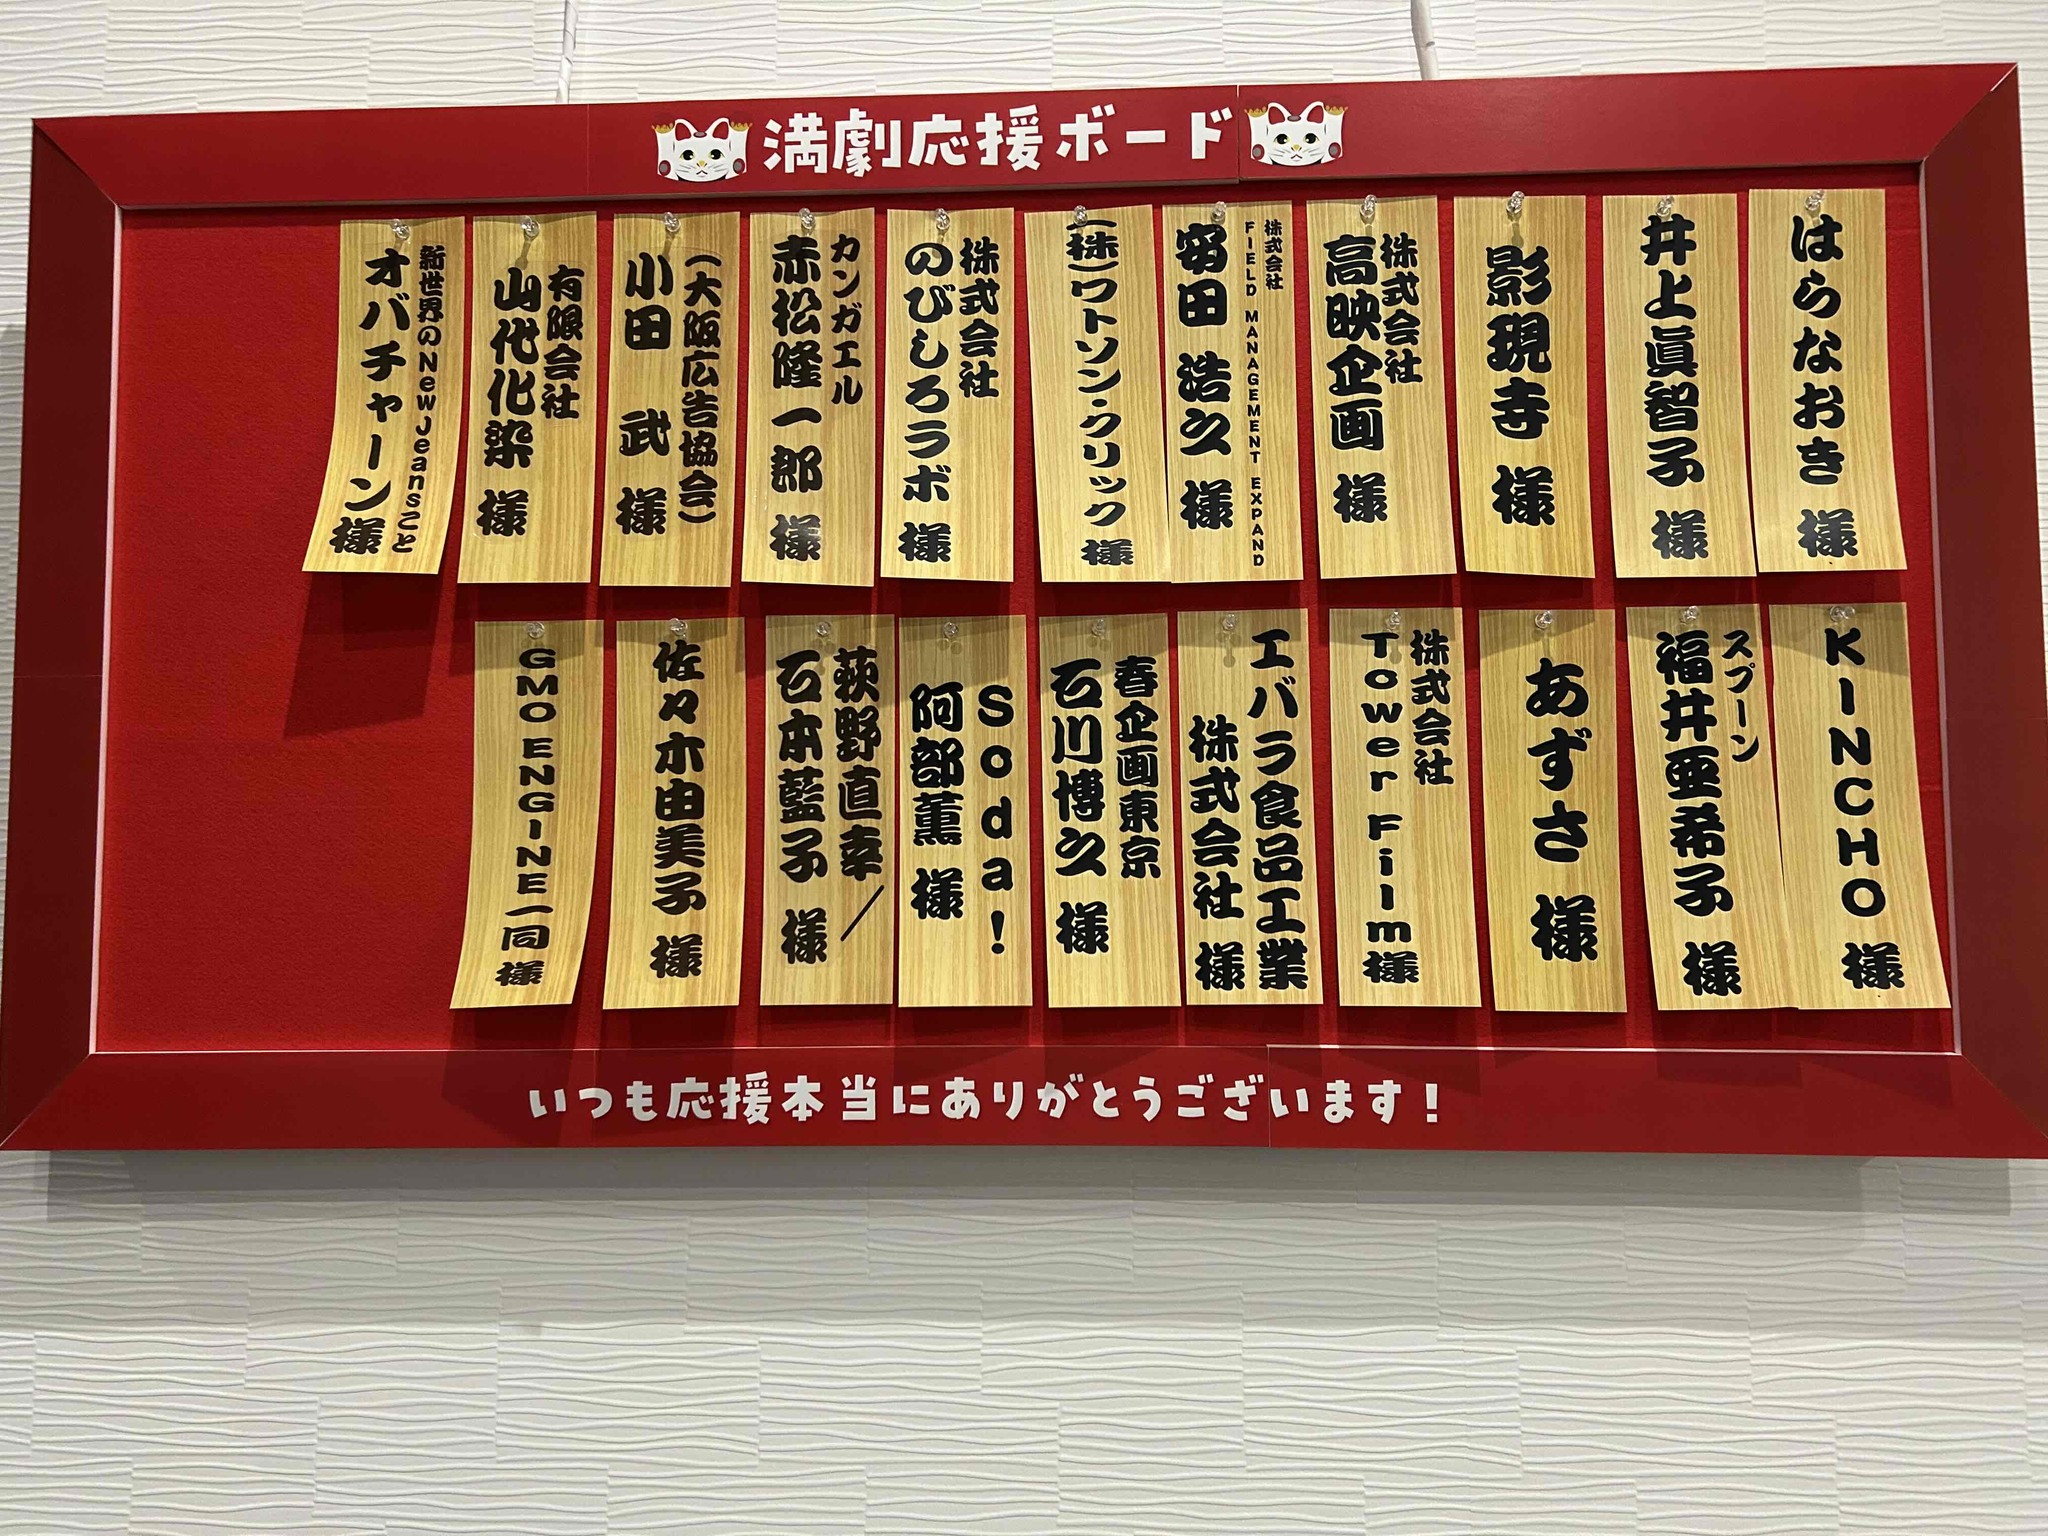 満劇応援ボード
はらなおき 様
井上眞智子 様
影現寺 様
株式会社
高映企画 様
株式会社
FIELD MANAGEMENT EXPAND
安田 浩久 様
(株)ワトソン・クリック 様
株式会社
のびしろラボ 様
カンガエル
赤松隆一郎 様
(大阪広告協会)
小田 武 様
有限会社
山代化染 様
新世界のNewJeansこと
オバチャーン様
KINCHO 様
スプーン
福井亜希子 様
あずさ 様
株式会社
Tower Film様
エバラ食品工業
株式会社 様
春企画東京
石川博久 様
Soda!
阿部薫 様
荻野直幸/
石本藍子 様
佐々木由美子 様
GMO ENGINE一同 様
いつも応援本当にありがとうございます!